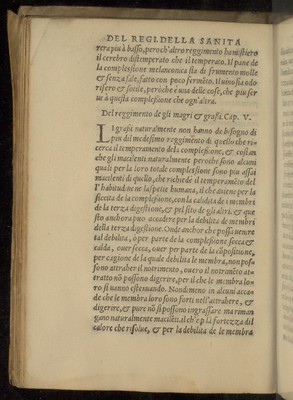 DEL REGI. DELLA SANITA
rera piu à basso, peroch'altro reggimento ha mistiero
il cerebro distemperato che il temperato. Il pane de
la complessione melanconica sia di frumento molle
& senza sale, fatto con poco fermẽto. Il uino sia odo
rifero & sottile, perôche è una delle cose, che piu ser
ue à questa complessione che ogn'altra.
Del reggimento de gli magri & grassi. Cap. V.
I grassi naturalmente non hanno de bisogno di
piu dil medesimo reggimẽto di quello che ri
cerca il temperamento dela complessiõe, & cosi an
che gli macilenti naturalmente peroche sono alcuni
quali per la loro totale complessione sono piu assai
macilenti di quello, che richiede il temperamẽto del
l'habitudine ne la spetie humana, il che auiene per la
siccita de la complessione, con la calidita de i membri
de la terza digestione, & pel sito de gli altri, & que
sto anchora puo accadere per la debilita de membri
della terza digestione. Onde anchor che possa uenire
tal debilita, ò per parte de la complessione secca &
calda, ouer secca, ouer per parte de la cõpositione,
per cagione de la quale debilita le membra, non pos-
sono attraher il notrimento, ouero il notrimẽto at-
tratto nõ possono digerire, per il che le membra lo-
ro si uanno estenuando. Nondimeno in alcuni acca-
de che le membra loro sono forti nell'attrahere, &
digerire, & pure nõ si possono ingrassare ma riman
gano naturalmente macilẽti. il ch'è p la fortezza dil
calore che risolue, & per la debilita de le membra